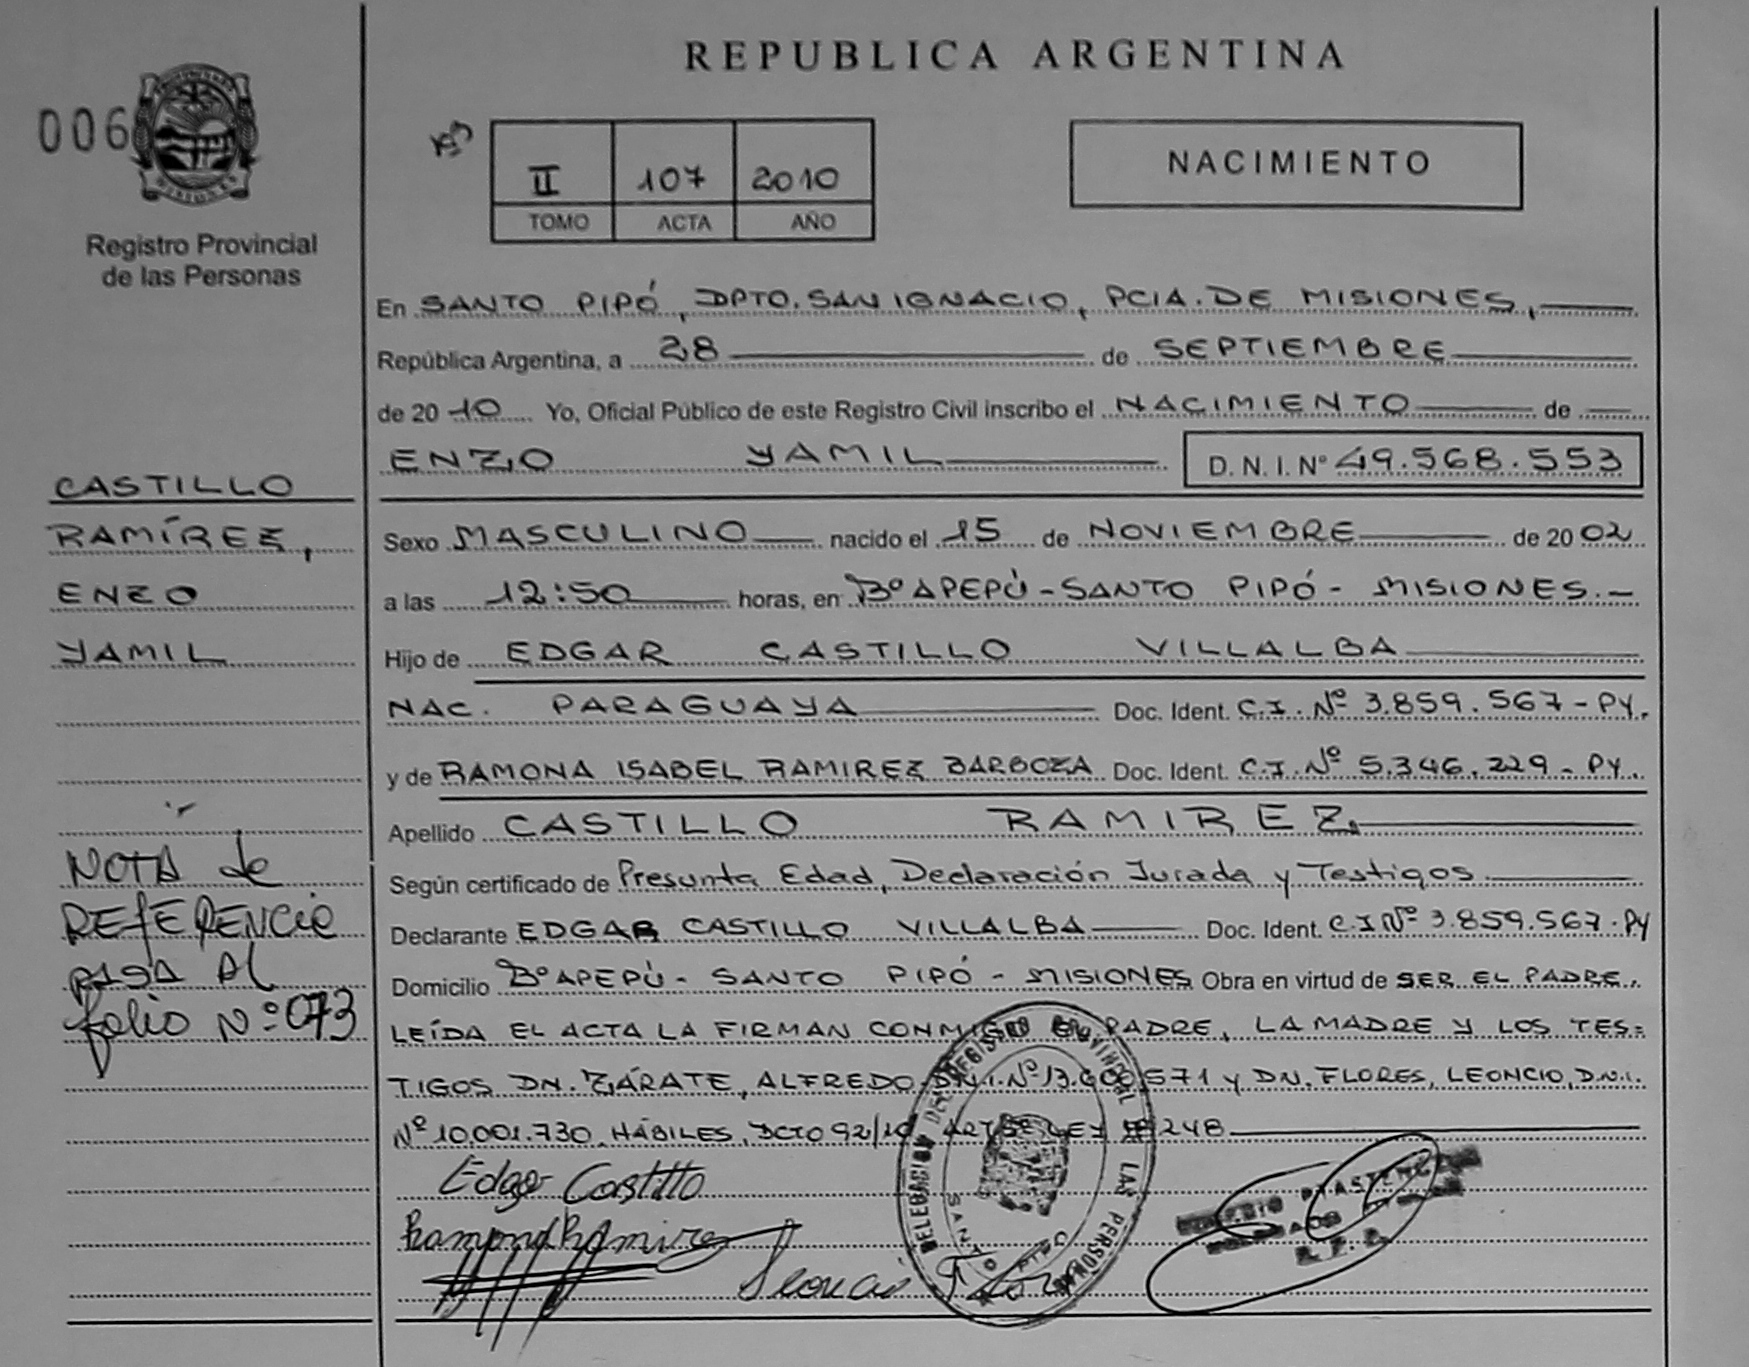 REPUBLICA ARGENTINA
006
NACIMIENTO
II 107 2010
TOMO ACTA AÑO
Registro Provincial
de las Personas
En SANTO PIPÓ, DPTO. SAN IGNACIO, PCIA. DE MISIONES,
República Argentina, a 28 de SEPTIEMBRE
de 2010 Yo, Oficial Público de este Registro Civil inscribo el NACIMIENTO de
ENZO YAMIL D.N.I. Nº 49.568.553
CASTILLO
RAMÍREZ,
ENZO
YAMIL
Sexo MASCULINO nacido el 15 de NOVIEMBRE de 2002
a las 12:50 horas, en Bº APEPÚ - SANTO PIPÓ - MISIONES.-
Hijo de EDGAR CASTILLO VILLALBA
NAC. PARAGUAYA Doc. Ident. C.I. Nº 3.859.567-PY.
y de RAMONA ISABEL RAMIREZ BARBOZA Doc. Ident. C.I. Nº 5.346.229-PY.
Apellido CASTILLO RAMIREZ
Según certificado de Presunta Edad, Declaración Jurada y Testigos
Declarante EDGAR CASTILLO VILLALBA Doc. Ident. C.I Nº 3.859.567-PY
Domicilio Bº APEPÚ - SANTO PIPÓ - MISIONES Obra en virtud de SER EL PADRE.
LEÍDA EL ACTA LA FIRMAN CONMIGO EL PADRE, LA MADRE Y LOS TES=
TIGOS DN. ZÁRATE, ALFREDO D.N.I. Nº y DN. FLORES, LEONCIO, D.N.I.
Nº 10.001.730, HÁBILES, DCTO 92/10 ART 5º LEY 248
NOTA de
REFERENCIA
PASA Al
folio Nº 073
Edgar Castillo
Ramona Ramirez
Leoncio Flores
DELEGACION DEL REGISTRO PROVINCIAL DE LAS PERSONAS
SANTO PIPO
R. P. P.